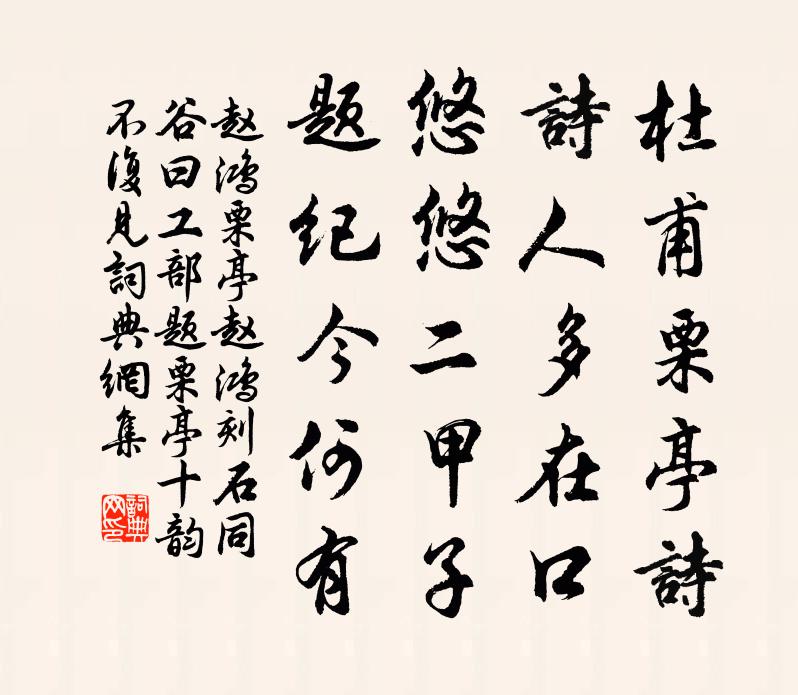 杜甫栗亭詩
詩人多在口
悠悠二甲子
题紀今何有
赵鴻栗亭赵鴻刻石同
谷曰工部题栗亭十韵
不復見詞典網集
詞典网印